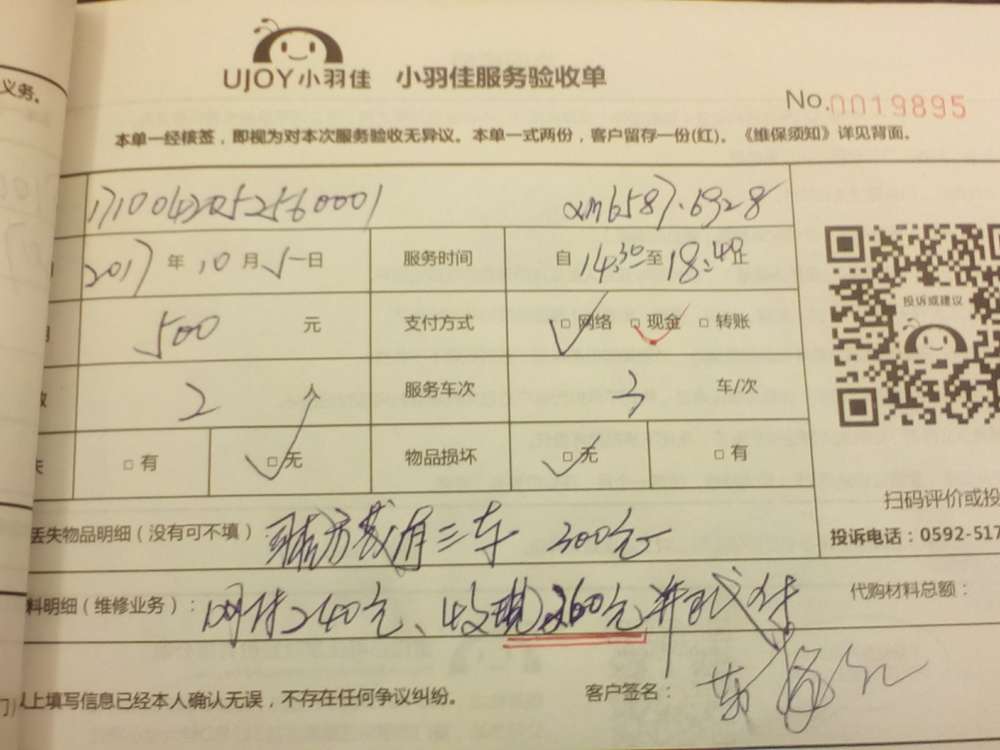 义务。
UJOY小羽佳 小羽佳服务验收单
No.0019895
本单一经核签，即视为对本次服务验收无异议。本单一式两份，客户留存一份(红)。《维保须知》详见背面。
1710042052560001 6587.6928
2017年10月 日 服务时间 自14:30至18:40止
500元 支付方式 □网络 □现金 □转账
投诉或建议
2人 服务车次 3车/次
□有 □无 物品损坏 □无 □有
扫码评价或投
丢失物品明细（没有可不填）： 有三车 300元
投诉电话：0592-517
料明细（维修业务）： 网付240元、收现260元
代购材料总额：
以上填写信息已经本人确认无误，不存在任何争议纠纷。 客户签名：